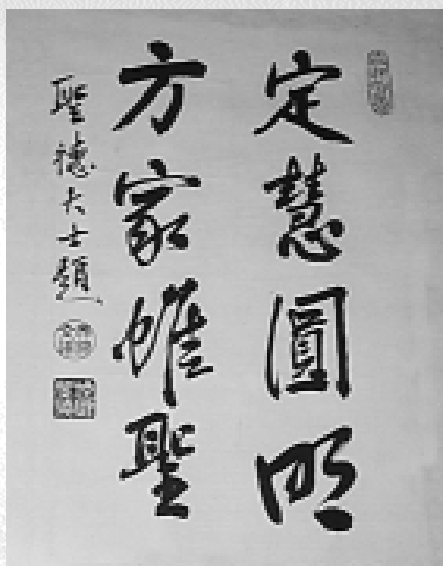 定慧圓明
方家惟聖
聖德大士題